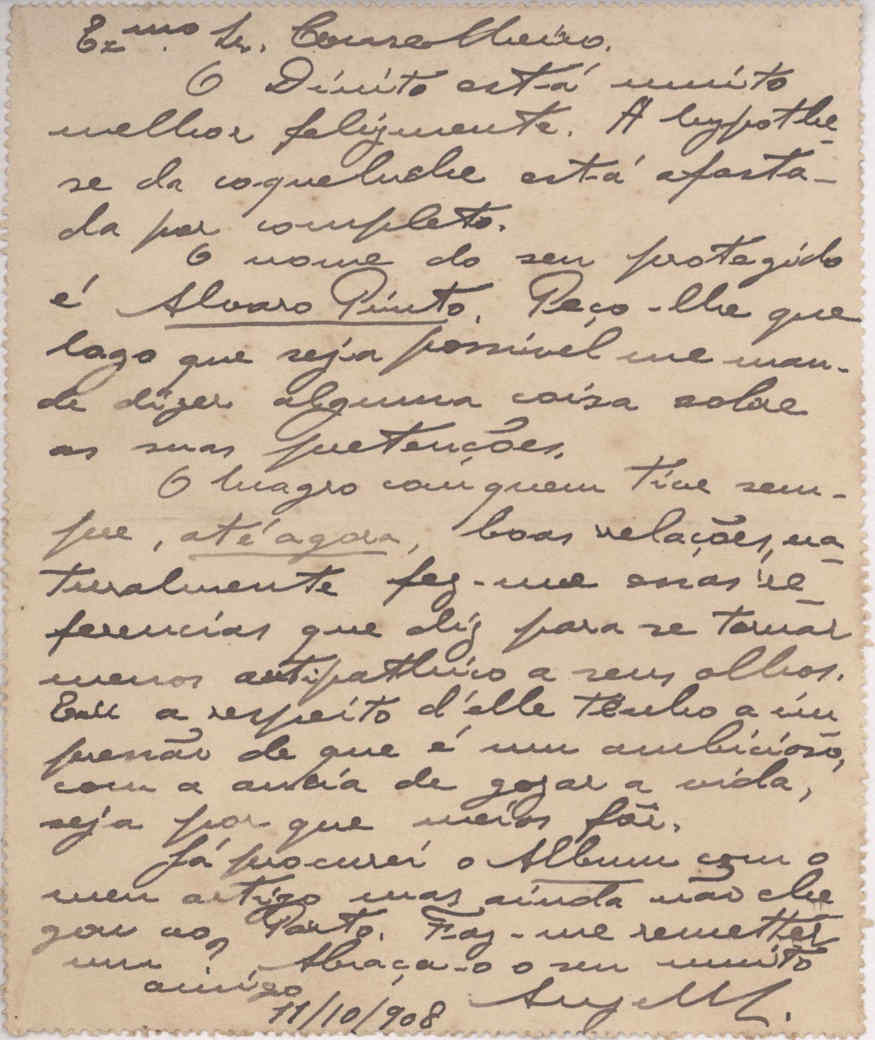 Exmo. Sr. Conselheiro.
O Dinito está muito
melhor felizmente. A hypothe-
se da coqueluche está afasta-
da por completo.
O nome do seu protegido
é Alvaro Pinto. Peço-lhe que
logo que seja possivel me man-
de dizer alguma coisa sobre
as suas pretenções.
O Magro com quem tive sem-
pre, até agora, boas relações, na
turalmente fez-me essas re-
ferencias que diz para se tornar
menos antipathico a seus olhos.
Eu a respeito d'elle tenho a im
pressão de que é um ambicioso,
com a ancia de gozar a vida,
seja por que meios fôr.
Já procurei o Album com o
meu artigo mas ainda não che
gou ao Porto. Faz-me remetter
um? Abraça-o o seu muito
amigo
11/10/908